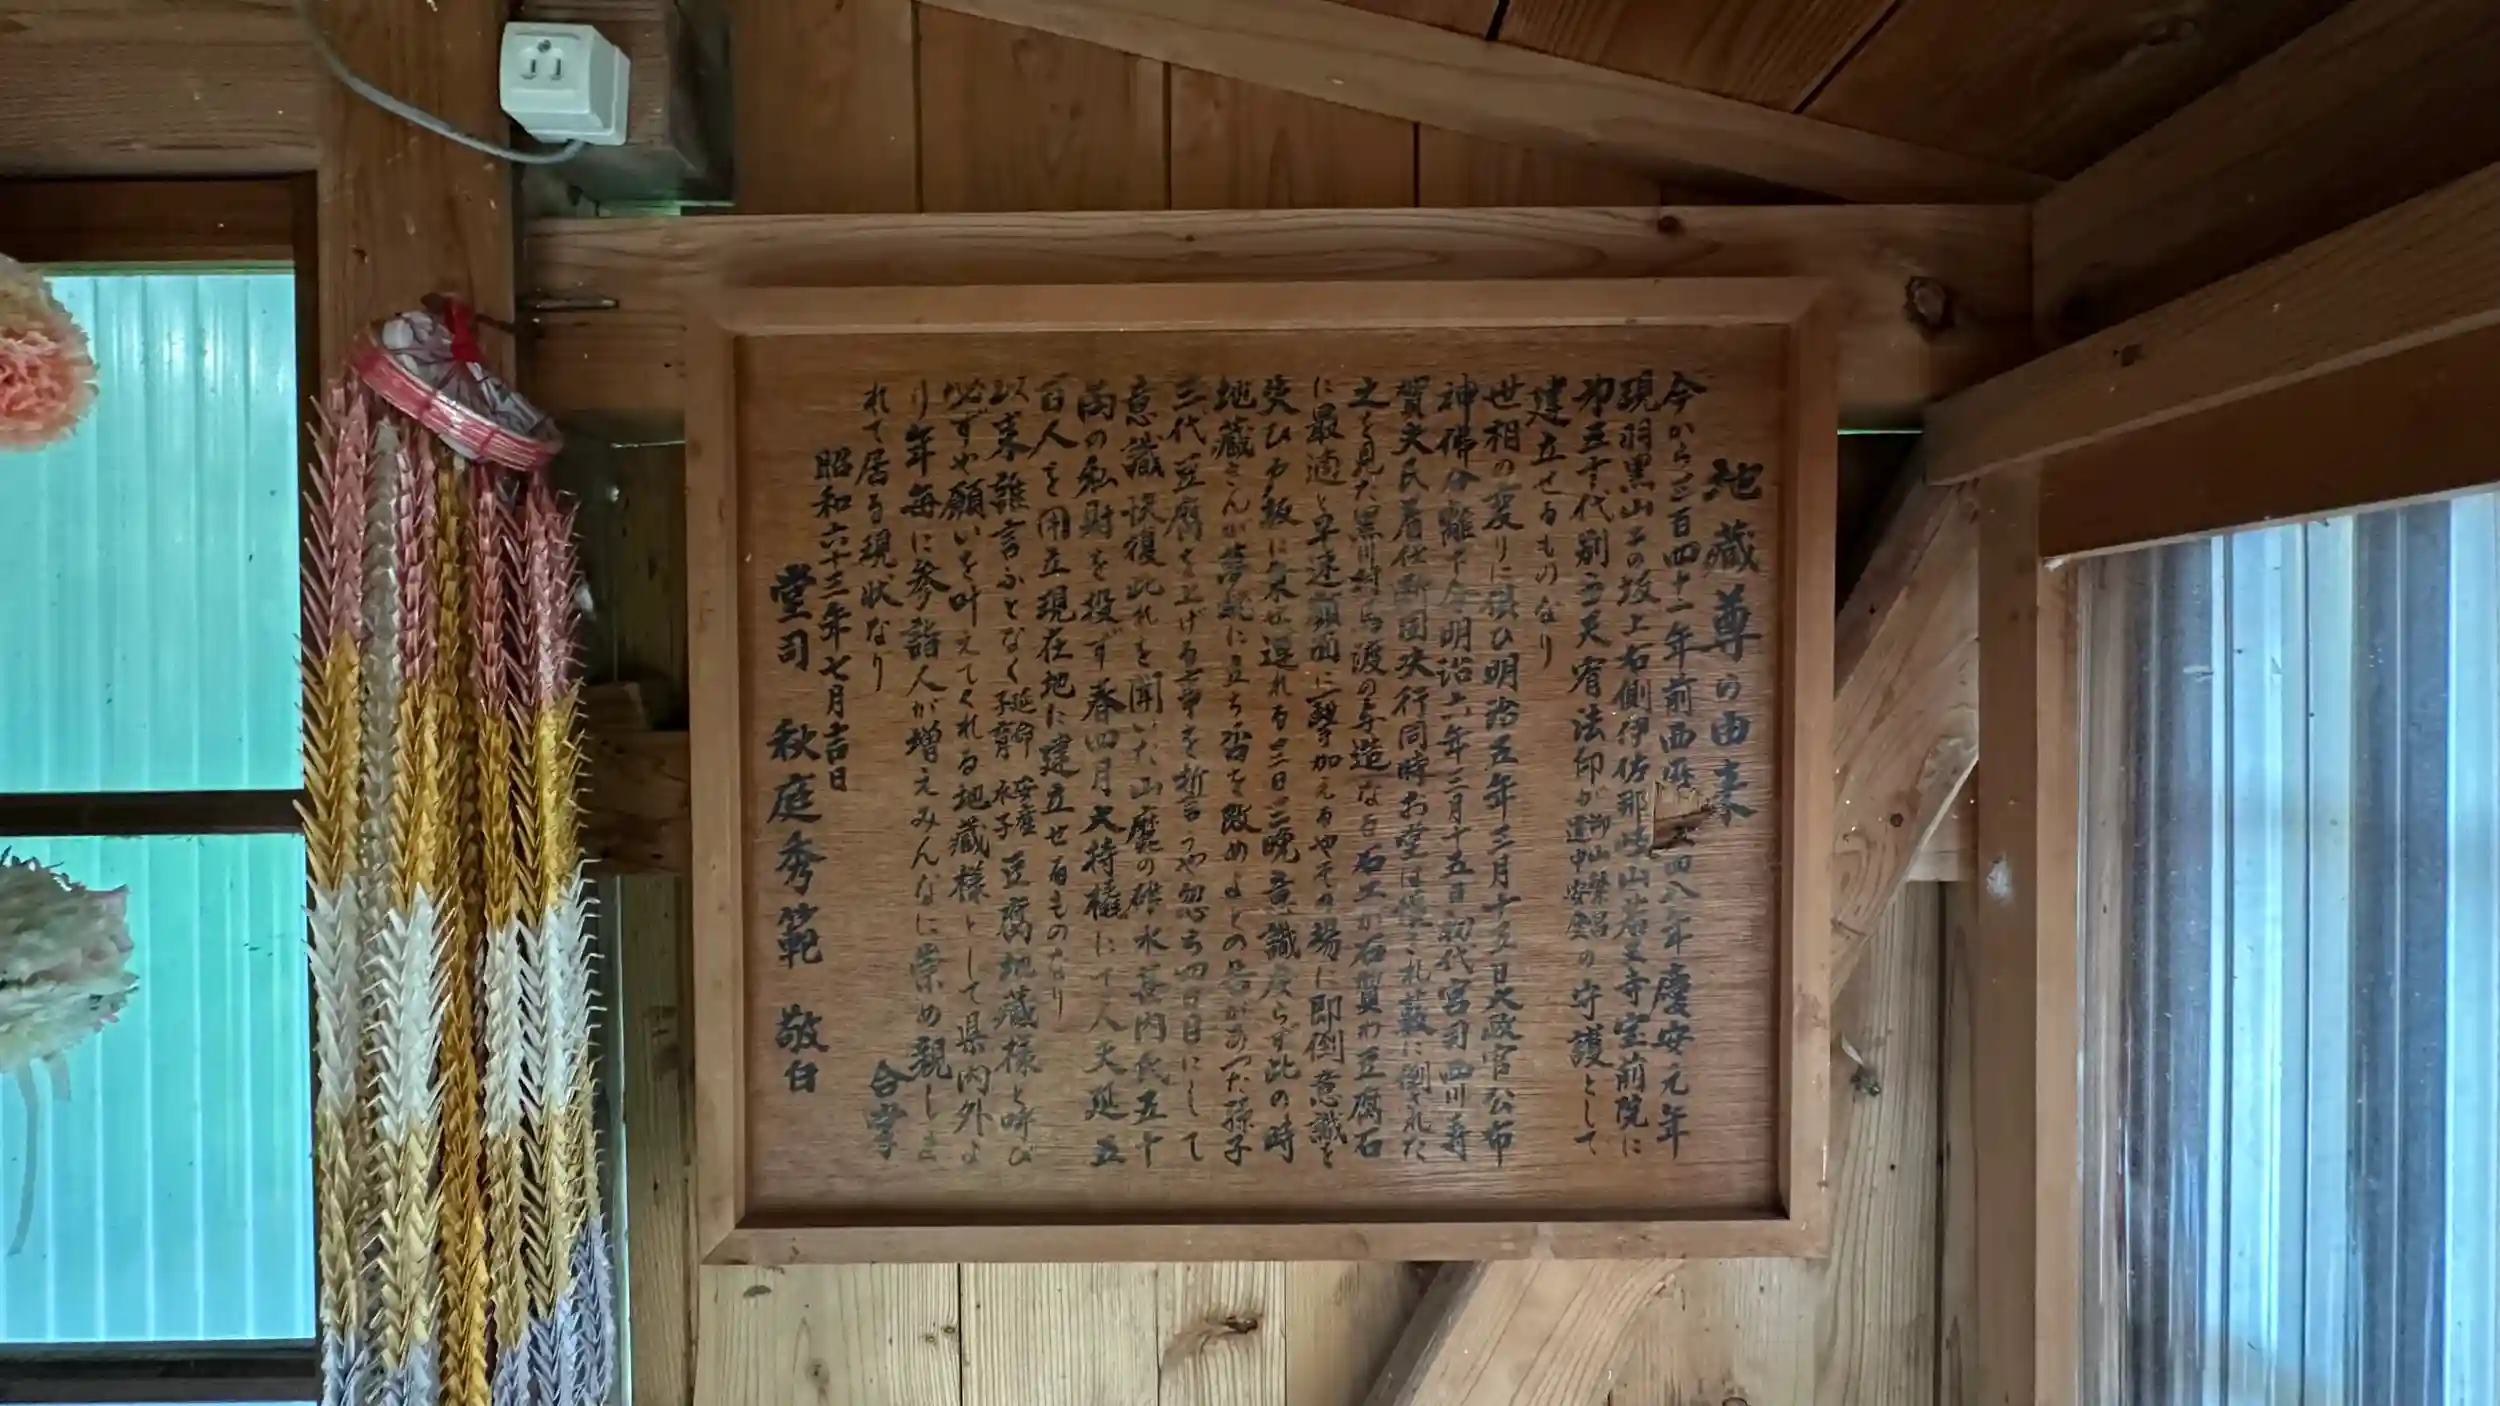 地蔵尊の由来
今から三百四十一年前西暦 六四八年慶安元年
現羽黒山二の坂上右側伊佐那岐山岩王寺宝前院に
第五十代別当天宥法印が御山繁昌道中安全の守護として
建立せるものなり
世相の変りに穣ひ明治五年三月十五日大政官公布
神佛分離 令明治六年三月十五日初代宮司西川寿
賀夫氏着任断固決行同時お堂は され薮に倒された
之を見た黒川村馬渡の寿造なる石工が石質わ豆腐石
に最適と早速顔面に一撃加えるややその場に即倒意識を
失ひ 板に乗せ還れる三日三晩意識戻らず此の時
地蔵さんが夢枕に立ち 改めよとの告があった孫子
三代豆腐を上げる事を折言つや忽ち四日目にして
意識快復此れを聞いた山麓の 水 内氏五十
両の私財を投ず春四月大持橇にて人夫延五
百人を用立現在地に建立せるものなり
以来誰言ふとなく延命子育安産 子豆腐地蔵様と呼び
必ずや願いを叶えてくれる地蔵様トして県内外よ
り年毎に参詣人が増えみんなに崇め親しま
れて居る現状なり 合掌
昭和六十三年七月吉日
堂司 秋庭秀範 敬白